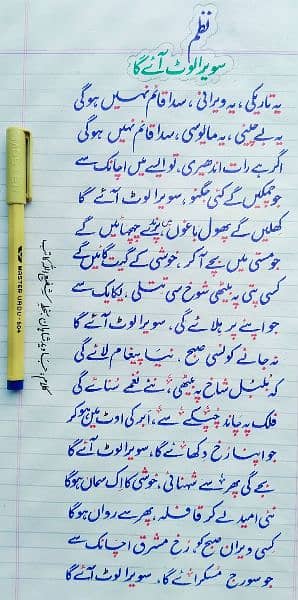 نظم
سویرا لوٹ آئے گا
یہ تاریکی، یہ ویرانی، سدا قائم نہیں ہوگی
یہ بے چینی، یہ مایوسی، سدا قائم نہیں ہوگی
اگر ہے رات اندھیری، تو ایسے میں اچانک سے
جو چمکیں گے کئی جگنو، سویرا لوٹ آئے گا
کھلیں گے پھول باغوں میں، پرندے چہچہائیں گے
جو مستی میں بچے آکر، خوشی کے گیت گائیں گے
کسی پتی پہ بیٹھی شوخ سی تتلی، یکایک سے
جو اپنے پر ہلائے گی، سویرا لوٹ آئے گا
نہ جانے کونسی صبح، نیا پیغام لائے گی
کہ بلبل شاخ پہ بیٹھی، نئے نغمے سنائے گی
فلک پہ چاند چپکے سے، ابر کی اوٹ میں ہو کر
جو اپنا رخ دکھائے گا، سویرا لوٹ آئے گا
بجے گی پھر سے شہنائی، خوشی کا اک سماں ہوگا
نئی امید لے کر قافلہ، پھر سے رواں ہوگا
کسی ویران صبح کو، رخ مشرق اچانک سے
جو سورج مسکرائے گا، سویرا لوٹ آئے گا
MASTER URDU-604